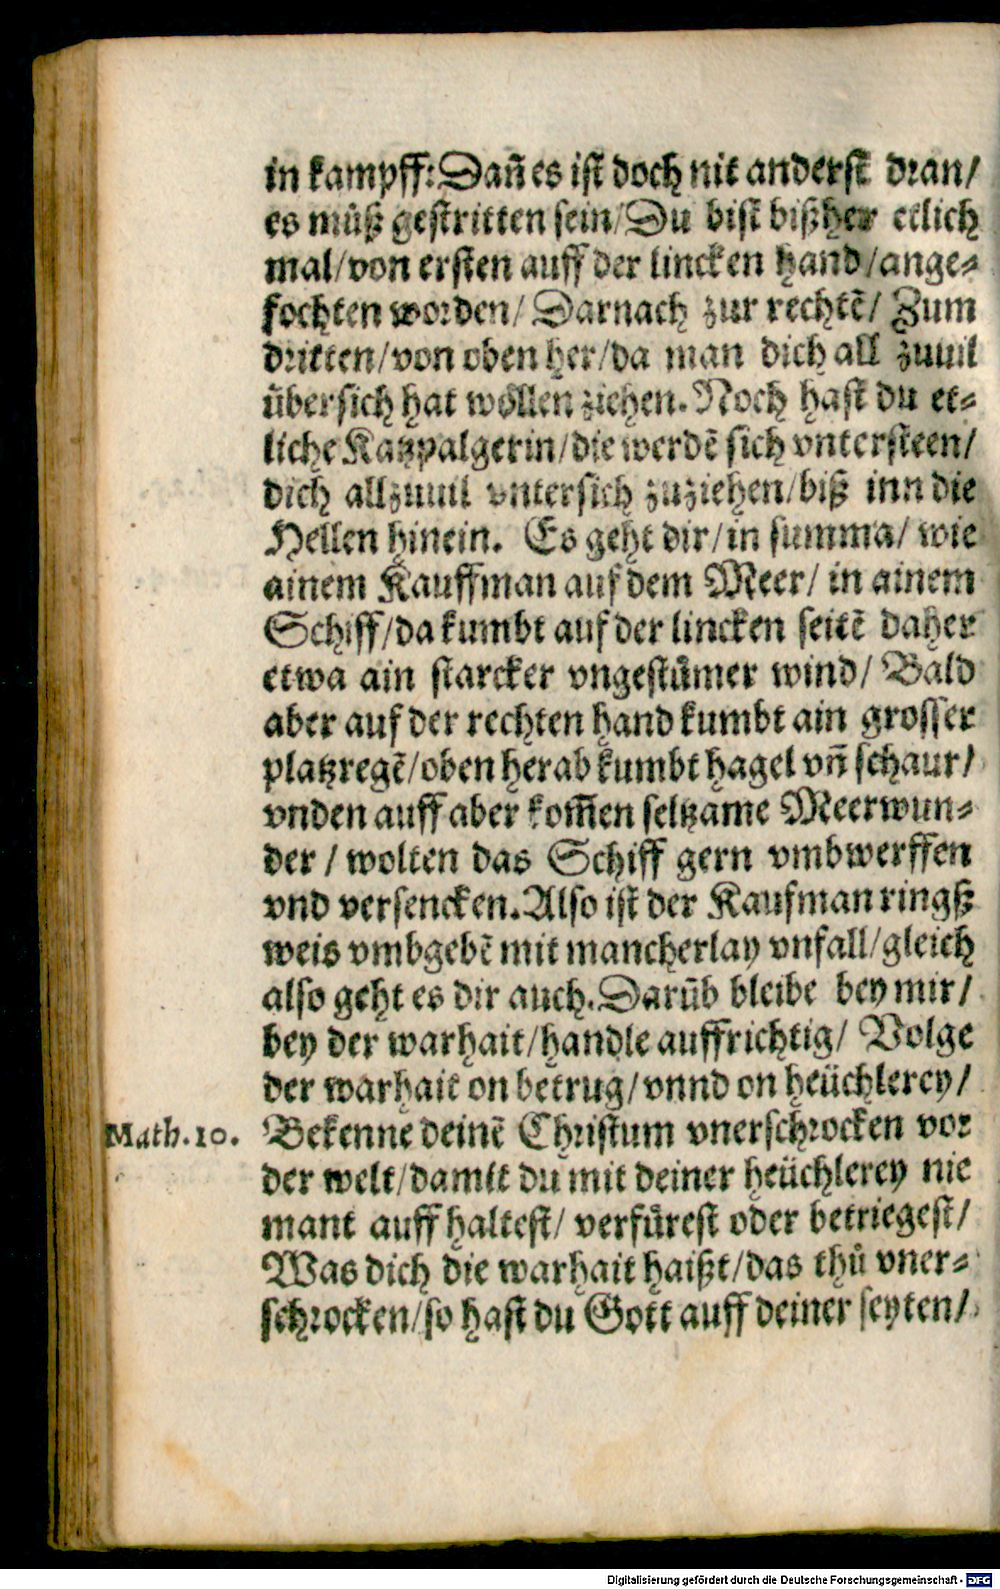 in kampff: Dañ es ist doch nit anderst dran/
es můß gestritten sein/ Du bist bißher etlich
mal/ von ersten auff der lincken hand/ ange⸗
fochten worden/ Darnach zur rechtẽ/ Zum
dritten/ von oben her/ da man dich all zuuil
übersich hat wöllen ziehen. Noch hast du et⸗
liche Katzpalgerin/ die werdẽ sich vntersteen/
dich allzuuil vntersich zuziehen/ biß inn die
Hellen hinein. Es geht dir/ in summa/ wie
ainem Kauffman auf dem Meer/ in ainem
Schiff/ da kumbt auf der lincken seitẽ daher
etwa ain starcker vngestůmer wind/ Bald
aber auf der rechten hand kumbt ain grosser
platzregẽ/ oben herab kumbt hagel vñ schaur/
vnden auff aber kom̃en seltzame Meerwun⸗
der / wolten das Schiff gern vmbwerffen
vnd versencken. Also ist der Kaufman ringß
weis vmbgebẽ mit mancherlay vnfall/ gleich
also geht es dir auch. Darũb bleibe bey mir/
bey der warhait/ handle auffrichtig/ Volge
der warhait on betrug/ vnnd on heüchlerey/
Math. 10. Bekenne deinẽ Christum vnerschrocken vor
der welt/ damit du mit deiner heüchlerey nie
mant auff haltest/ verfůrest oder betriegest/
Was dich die warhait haißt/ das thů vner⸗
schrocken/ so hast du Gott auff deiner seyten/
Digitalisierung gefördert durch die Deutsche Forschungsgemeinschaft - DFG